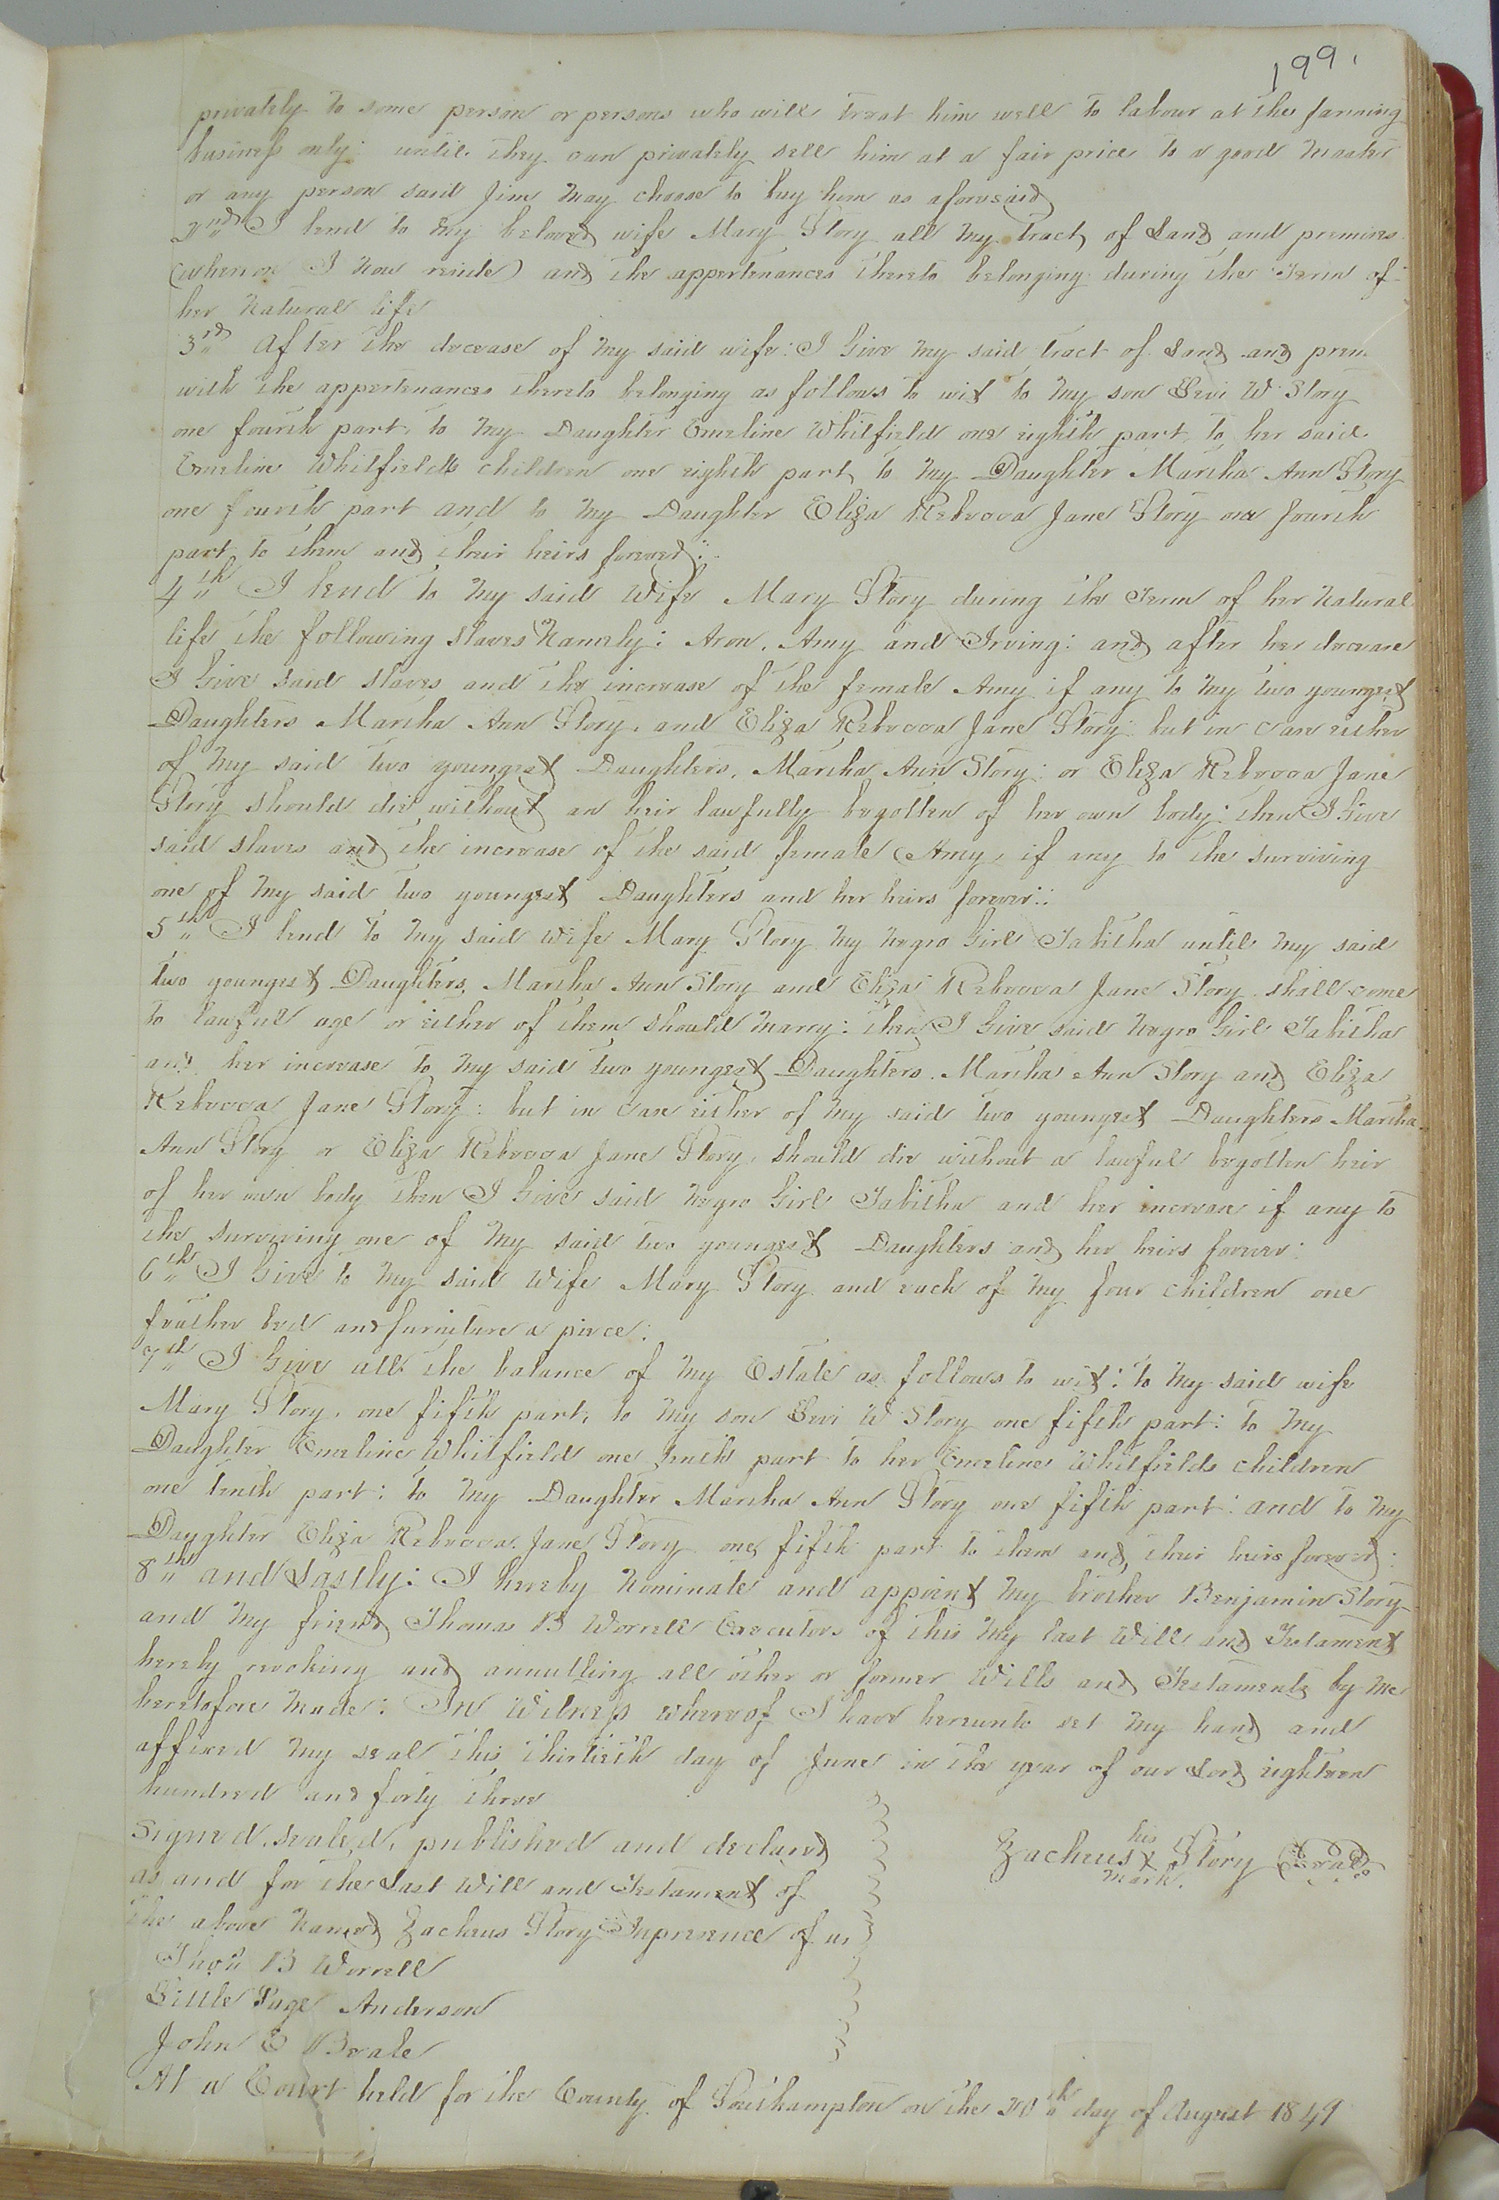 199.
privately to some person or persons who will treat him well to labour at the farming
business only: until they can privately sell him at a fair price to a good Master
or any person said Jim may choose to buy him as aforesaid
2nd I lend to my beloved wife Mary Story all my tract of Land and premises
(whereon I now reside) and the appertenances thereto belonging during the Term of
her Natural life
3rd After the decease of my said wife: I Give my said tract of Land and prem
with the appertenances thereto belonging as follows to wit to my son Levi W Story
one fourth part, to my Daughter Emeline Whitfield one eighth part, to her said
Emeline Whitfields children one eighth part, to my Daughter Martha Ann Story
one fourth part and to my Daughter Eliza Rebecca Jane Story one fourth
part, to them and their heirs forever:
4th I lend to my said Wife Mary Story during the Term of her Natural
life the following slaves Namely: Aron, Amy and Irving: and after her decease
I Give said slaves and the increase of the female Amy if any to my two youngest
Daughters Martha Ann Story, and Eliza Rebecca Jane Story: but in case either
of my said two youngest Daughters, Martha Ann Story: or Eliza Rebecca Jane
Story should die without an heir lawfully begotten of her own body: then I Give
said slaves and the increase of the said female Amy, if any to the surviving
one of my said two youngest Daughters and her heirs forever:
5th I lend to my said wife Mary Story my negro Girl Tabitha until my said
two youngest Daughters, Martha Ann Story and Eliza Rebecca Jane Story shall come
to lawful age or either of them should marry: then I Give said negro Girl Tabitha
and her increase to my said two youngest Daughters. Martha Ann Story and Eliza
Rebecca Jane Story: but in case either of my said two youngest Daughters Martha
Ann Story or Eliza Rebecca Jane Story, should die without a lawful begotten heir
of her own body then I Give said negro Girl Tabitha and her increase if any to
the surviving one of my said two youngest Daughters and her heirs forever:
6th I Give to my said Wife Mary Story and each of my four children one
feather bed and furniture a piece:
7th I Give all the balance of my Estate as follows to wit: to my said wife
Mary Story, one fifth part, to my son Levi W Story one fifth part: to my
Daughter Emeline Whitfield one tenth part to her Emeline Whitfields children
one tenth part: to my Daughter Martha Ann Story one fifth part: and to my
Daughter Eliza Rebecca Jane Story one fifth part to them and their heirs forever:
8th and Lastly: I hereby Nominate and appoint my brother Benjamin Story
and my friend Thomas B Worrell Executors of this my last Will and Testament
hereby revoking and annulling all other or former Wills and Testaments by me
heretofore made: In Witness whereof I have hereunto set my hand and
affixed my seal this thirtieth day of June in the year of our Lord eighteen
hundred and forty three
Signed, sealed, published and declared
as and for the Last Will and Testament of
the above Named Zacheus Story In presence of us
Thos B Worrell
Little Page Anderson
John E Beale
his
Zacheus X Story Seal
mark
At a Court held for the County of Southampton on the 20th day of August 1849